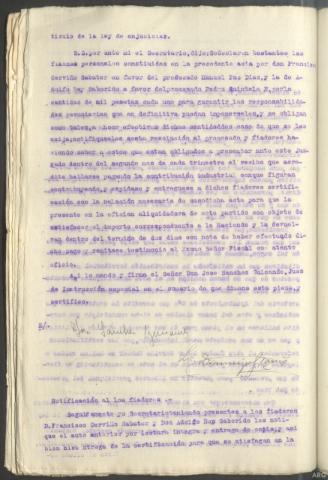 título de la ley de enjuiciar.
S.S. por ante mi el Secretario, dijo: Se declaran bastantes las
fianzas personales constituidas en la precedente acta por don Francisco
Cerviño Sabater en favor del procesado Manuel Paz Diaz, y la de A
dolfo Rey Saborido a favor del procesado Pedro Quintela R, por la
cantidad de mil pesetas cada uno para garantir las responsabilida-
des pecuniarias que en definitiva puedan imponerseles, y se obligan
como tales, a hacer efectivas dichas cantidades caso de que se les
exija, notifiquesles esta resolución al procesado y fiadores ha-
ciendo saber a estos que estan obligados a presentar ante este Juz-
gado dentro del segundo mes de cada trimestre el recibo que acre-
dite hallarse pagando la contribución industrial conque figuran
contribuyendo, y expidase y entreguese a dichos fiadores certifica-
ción con la relación necesaria de susodicha acta para que la
presente en la oficina liquidadora de este partido con objeto de
satisfacer el importe correspondiente a la Hacienda y la devuel-
van dentro del termino de dos dias con nota de haber efectuado di-
cho pago y remitase testimonio al Ilmo Señor Fiscal con atento
oficio.
Lo mandó y firma el Señor Don Jose Sanchez Guisande, Juez
de Instrucción especial en el sumario de que dimana esta pieza,
certifico.
Notificación al los fiadores
Seguidamente yo Secretario teniendo presentes a los fiadores
D. Francisco Cerviño Sabater y Don Adolfo Rey Saborido les noti-
que el auto anterior por lectura integra y entrega de copia, y asi
bien hice entrega de la certificación para que se satisfagan en la